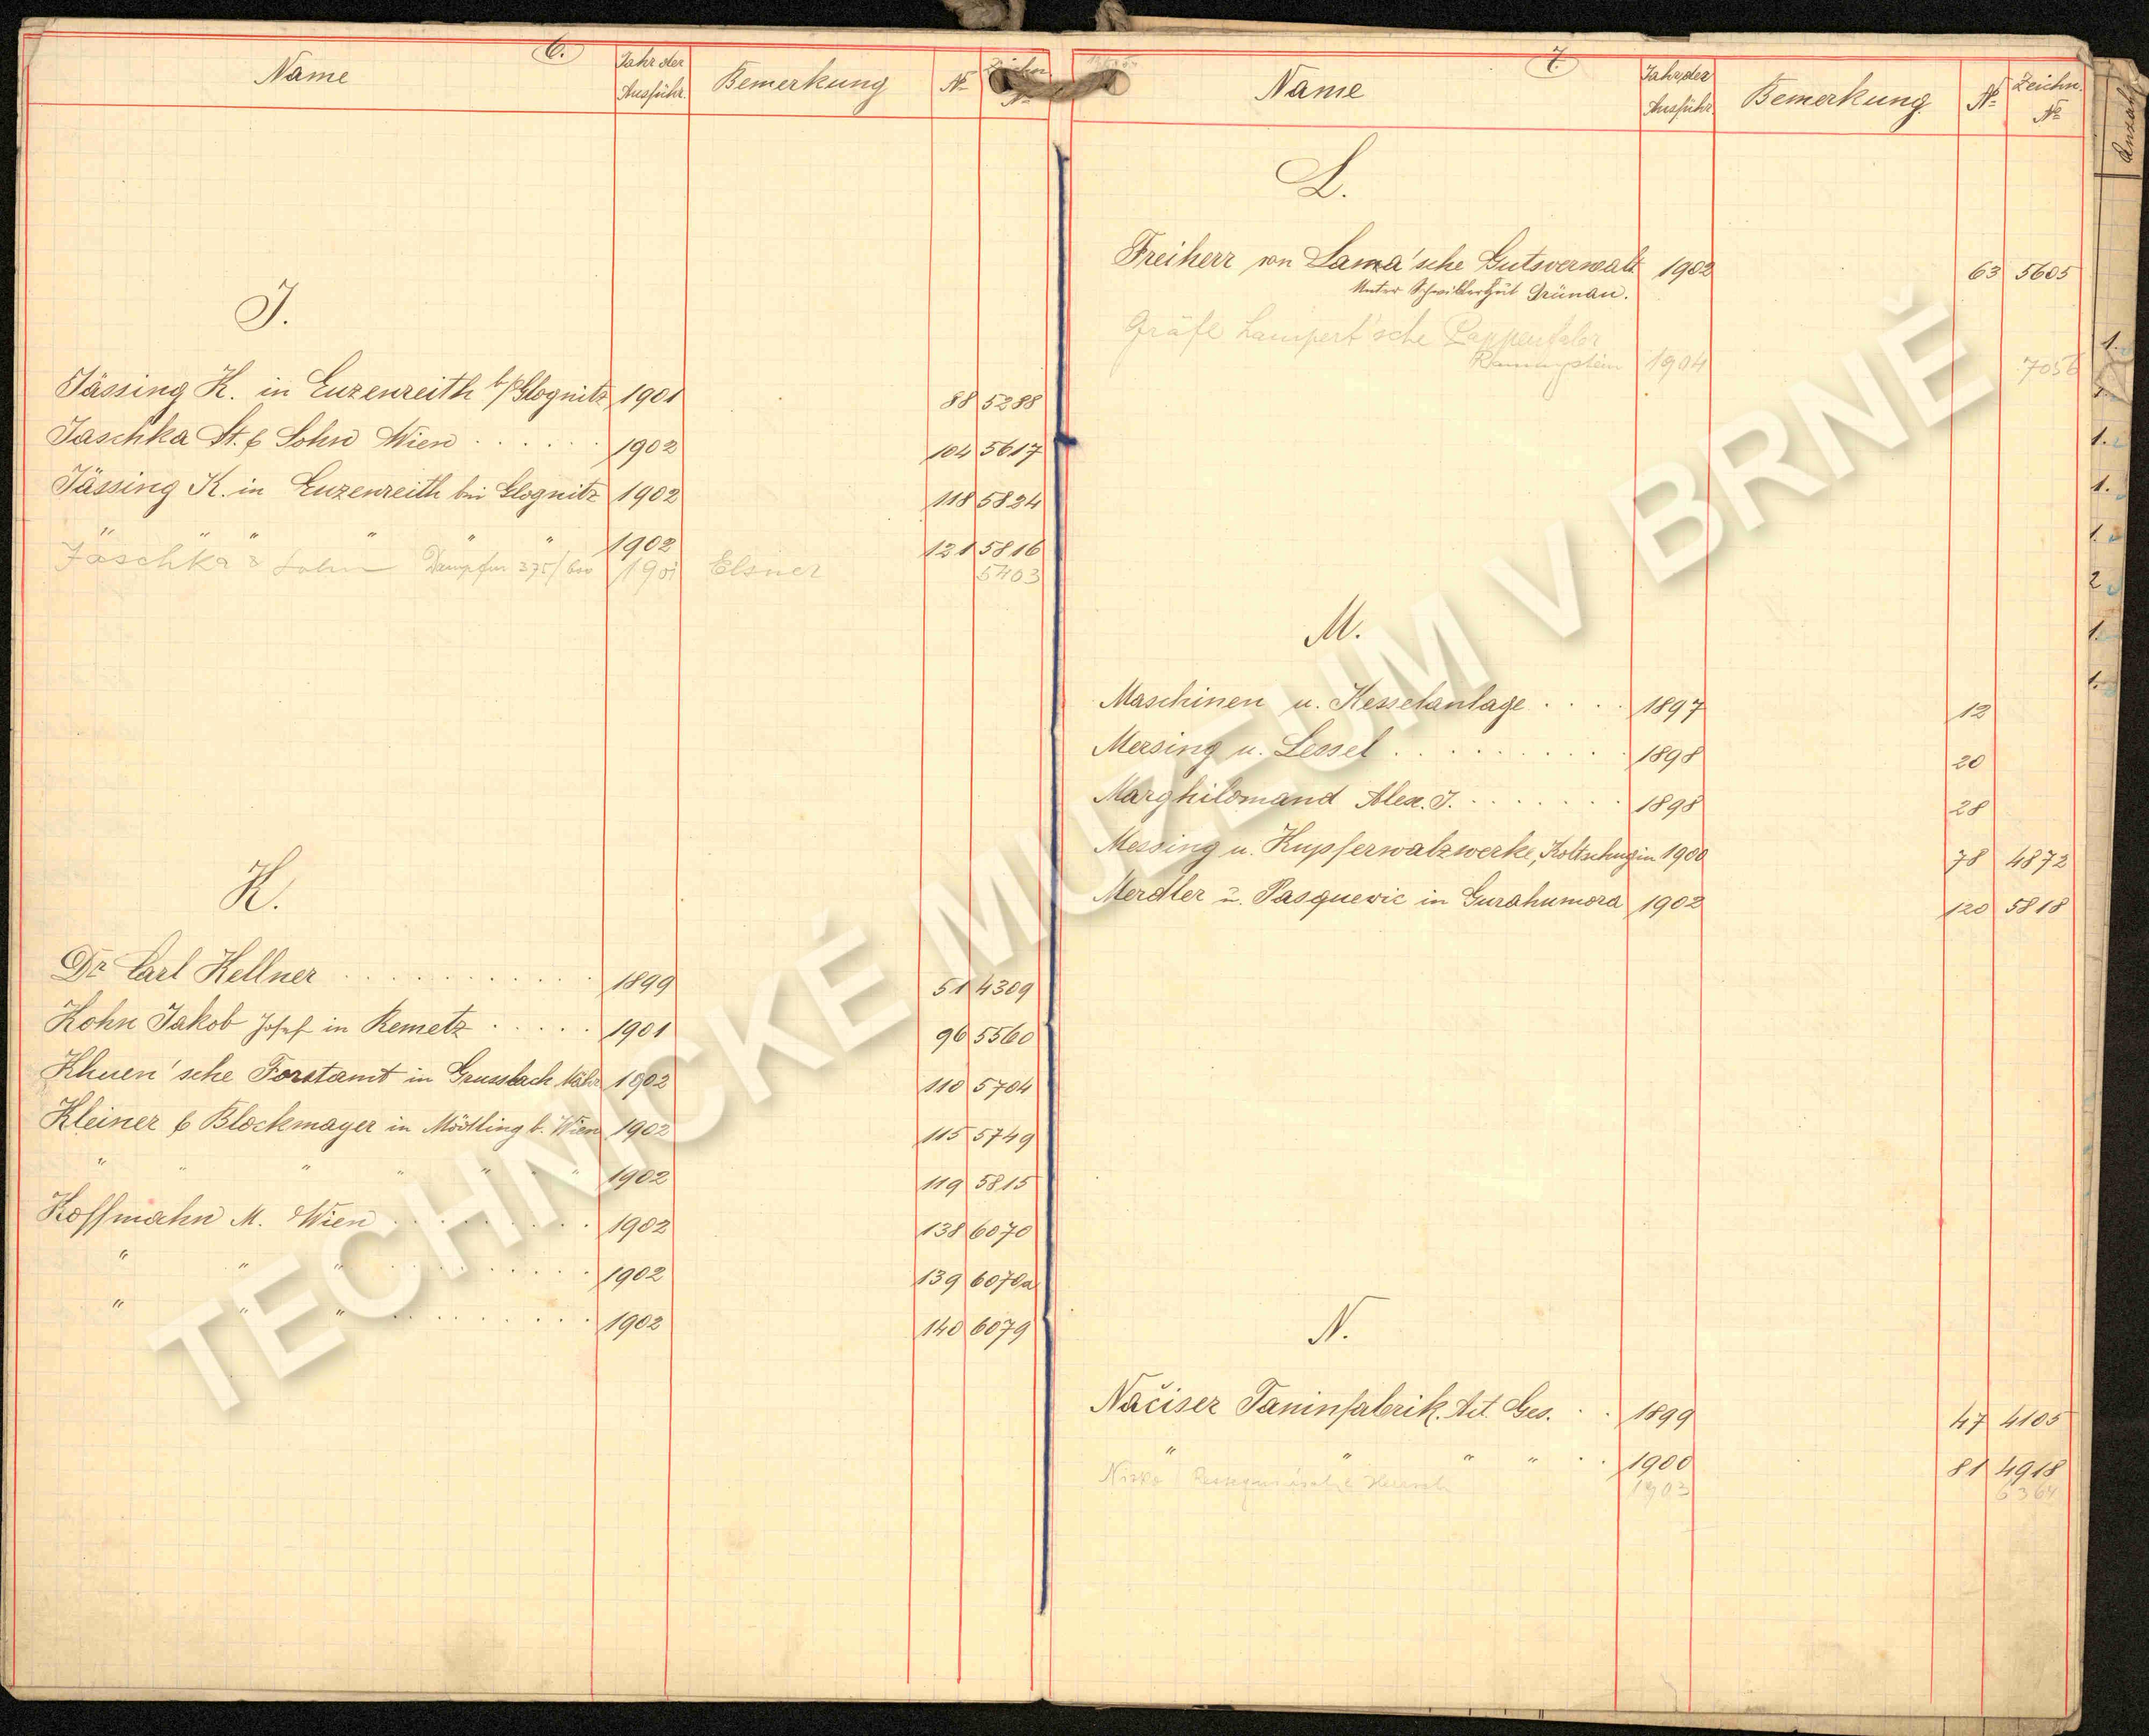 6.
Name Jahr der Ausführ. Bemerkung № Zeichn. №
J.
Jässing K. in Enzenreith b/Glognitz 1901 88 5288
Jaschka St. & Sohn Wien . . . . . . 1902 104 5617
Jässing K. in Enzenreith bei Glognitz 1902 118 5824
" " " " " " 1902 121 5816
Jaschka & Sohn Dampfm 375/600 1901 Elsner 5403
K.
Dr Carl Kellner . . . . . . . . . . . 1899 51 4309
Kohn Jakob Josef in Remetz . . . . . 1901 96 5560
Khuen'sche Forstamt in Grussbach Mähr 1902 110 5704
Kleiner & Blockmayer in Mödling b. Wien 1902 115 5749
" " " " " " " 1902 119 5815
Koffmahn M. Wien . . . . . . . . . 1902 138 6070
" " " . . . . . . . . . . 1902 139 6070a
" " " . . . . . . . . . . 1902 140 6079
7.
Name Jahr der Ausführ. Bemerkung. № Zeichn. №
L.
Freiherr von Lama'sche Gutsverwalt 1902 63 5605
Unter Grünau.
Gräfl Lampert'sche
1904 7056
M.
Maschinen u. Kesselanlage . . . . 1897 12
Mersing u. Lessel . . . . . . . . . . 1898 20
Marghilomand Alex. J. . . . . . . . 1898 28
Messing u. Kupferwalzwerke, Koltschugin 1900 78 4872
Merdler u. Pasquevic in Gurahumora 1902 120 5818
N.
Načiser Taninfabrik. Act. Ges. . . 1899 47 4105
" " " " . . 1900 81 4918
1903 6364
Anzahl
1.
1.
1.
1.
1.
2
1.
1.
TECHNICKÉ MUZEUM V BRNĚ